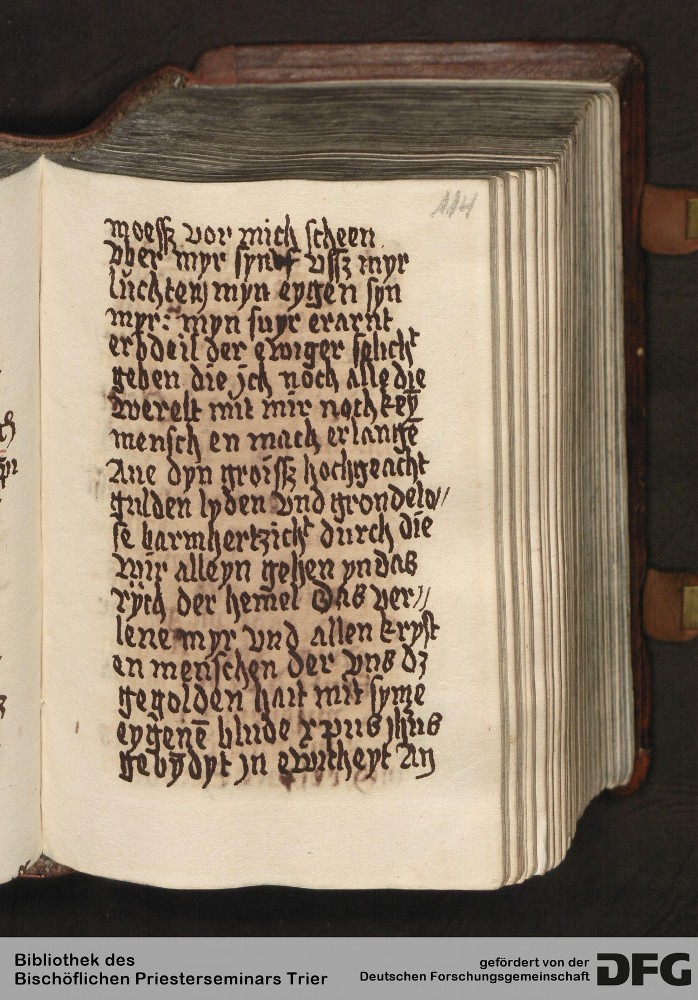 114
moeſſz vor mich ſcheen
vber myr ſyn vſſz myr
luchten myn eygen ſyn
myr: myn ſuyr erarnt
erbdeil der ewiger ſelicht
geben die jch noch alle die
werelt mit mir noch key
menſch en mach erlangē
Ane dyn groiſſz hochgeacht
gulden lyden vnd grondelo//
ſe barmhertzicht durch die
wir alleyn gehen yn das
rÿch der hemel Das ver//
lene myr vnd allen kryſt
en menſchen der vns dz
gegolden hait mit ſyme
eygenē blude xpus jhus
gebÿdyt jn ewicheyt An
Bibliothek des
Bischöflichen Priesterseminars Trier
gefördert von der
Deutschen Forschungsgemeinschaft
DFG